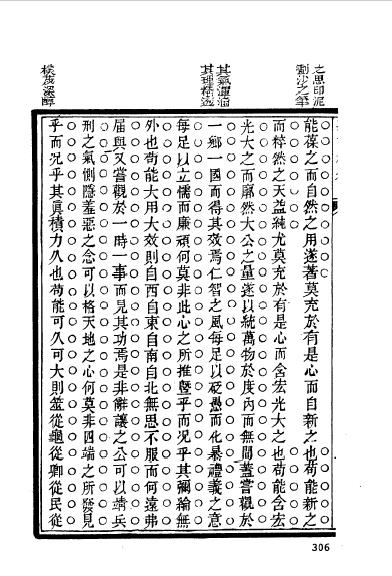 之思印泥
劃沙之筆
其氣渾涵
其理精透
樸茂深醇
能葆之而自然之用遂著莫充於有是心而自新之也苟能新之
而粹然之天益純尤莫充於有是心而含宏光大之也苟能含宏
光大之而廓然大公之量遂以統萬物於度內而無間蓋嘗觀於
一鄉一國而得其效焉仁智之風每足以砭愚而化暴禮義之意
每足以立懦而廉頑何莫非此心之所推暨乎而况乎其彌綸無
外也苟能大用大效則自西自東自南自北無思不服而何遠弗
屆與又嘗觀於一時一事而見其功焉是非辭讓之公可以靖兵
刑之氣惻隱羞惡之念可以格天地之心何莫非四端之所發見
乎而况乎其眞積力久也苟能可久可大則筮從龜從卿從民從
306